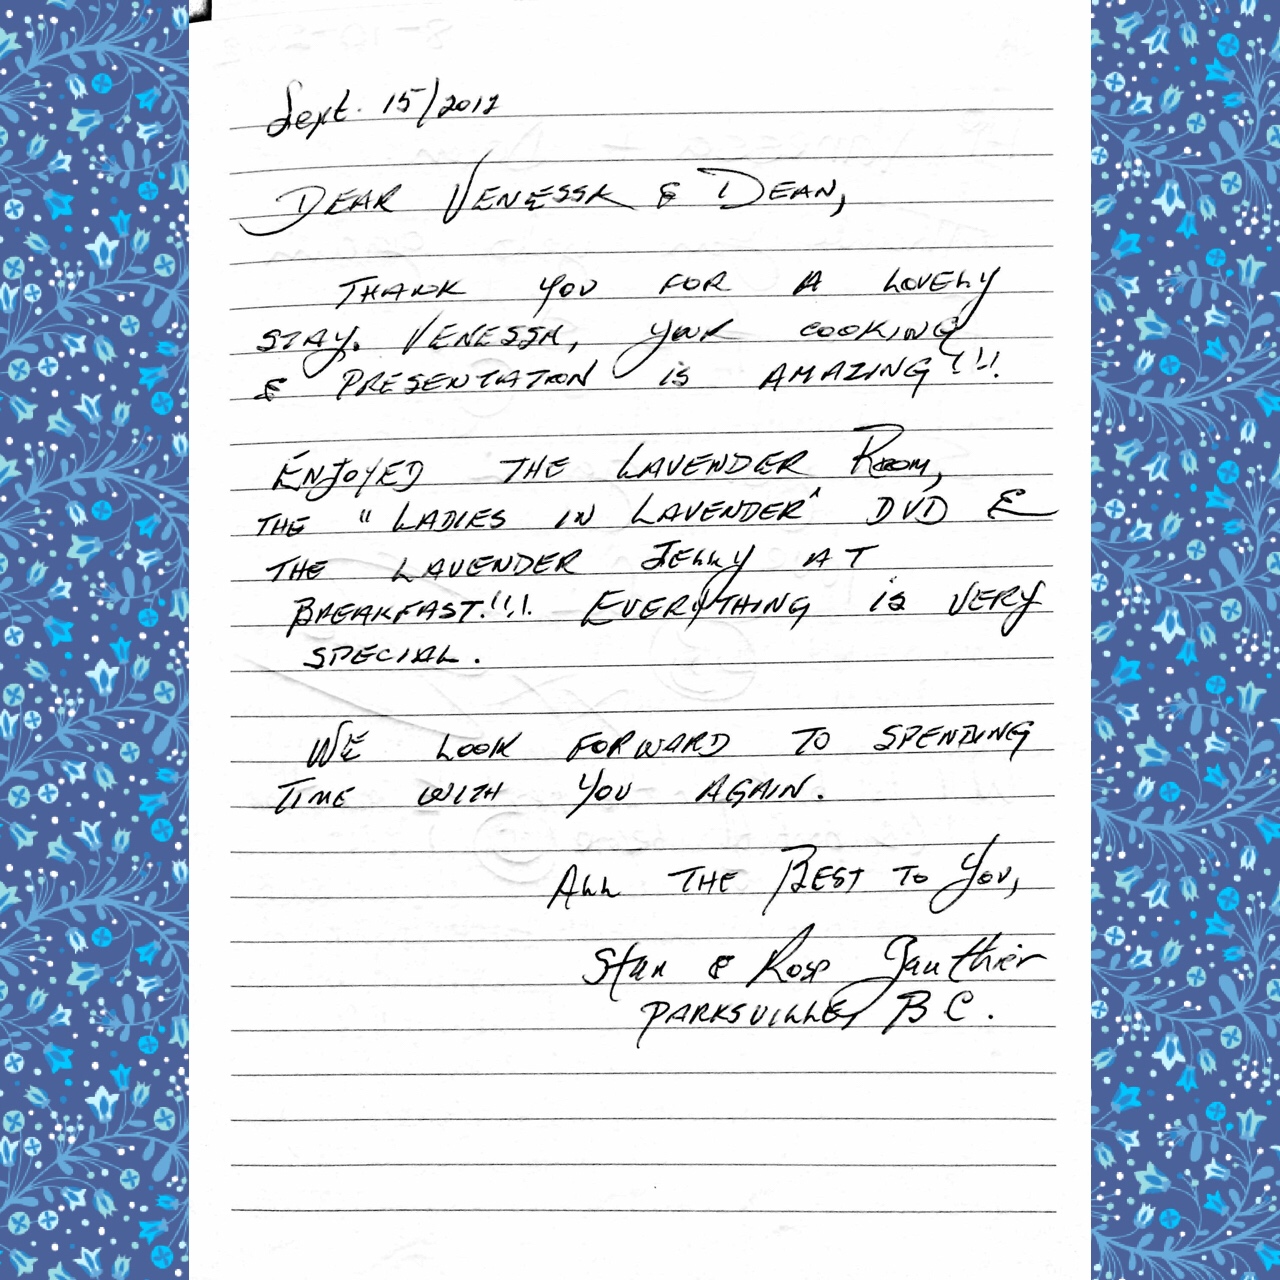 Sept. 15/2012
DEAR VENESSA & DEAN,
THANK YOU FOR A LOVELY
STAY. VENESSA, YOUR COOKING
& PRESENTATION IS AMAZING!!!
ENJOYED THE LAVENDER ROOM,
THE "LADIES IN LAVENDER" DVD &
THE LAVENDER JELLY AT
BREAKFAST!!!! EVERYTHING is VERY
SPECIAL.
WE LOOK FORWARD TO SPENDING
TIME WITH YOU AGAIN.
ALL THE BEST TO YOU,
Stan & Rose Gauthier
PARKSVILLE, B C.